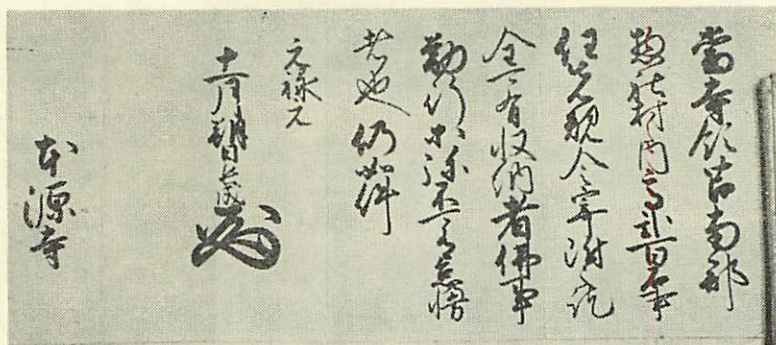 當寺領苫南郡
惣社村内高弐百石事
任先規令寄附訖
全可有収納者佛事
勤行等弥不可有怠慢
者也仍如件
元禄元
十一月朔日長成
本源寺